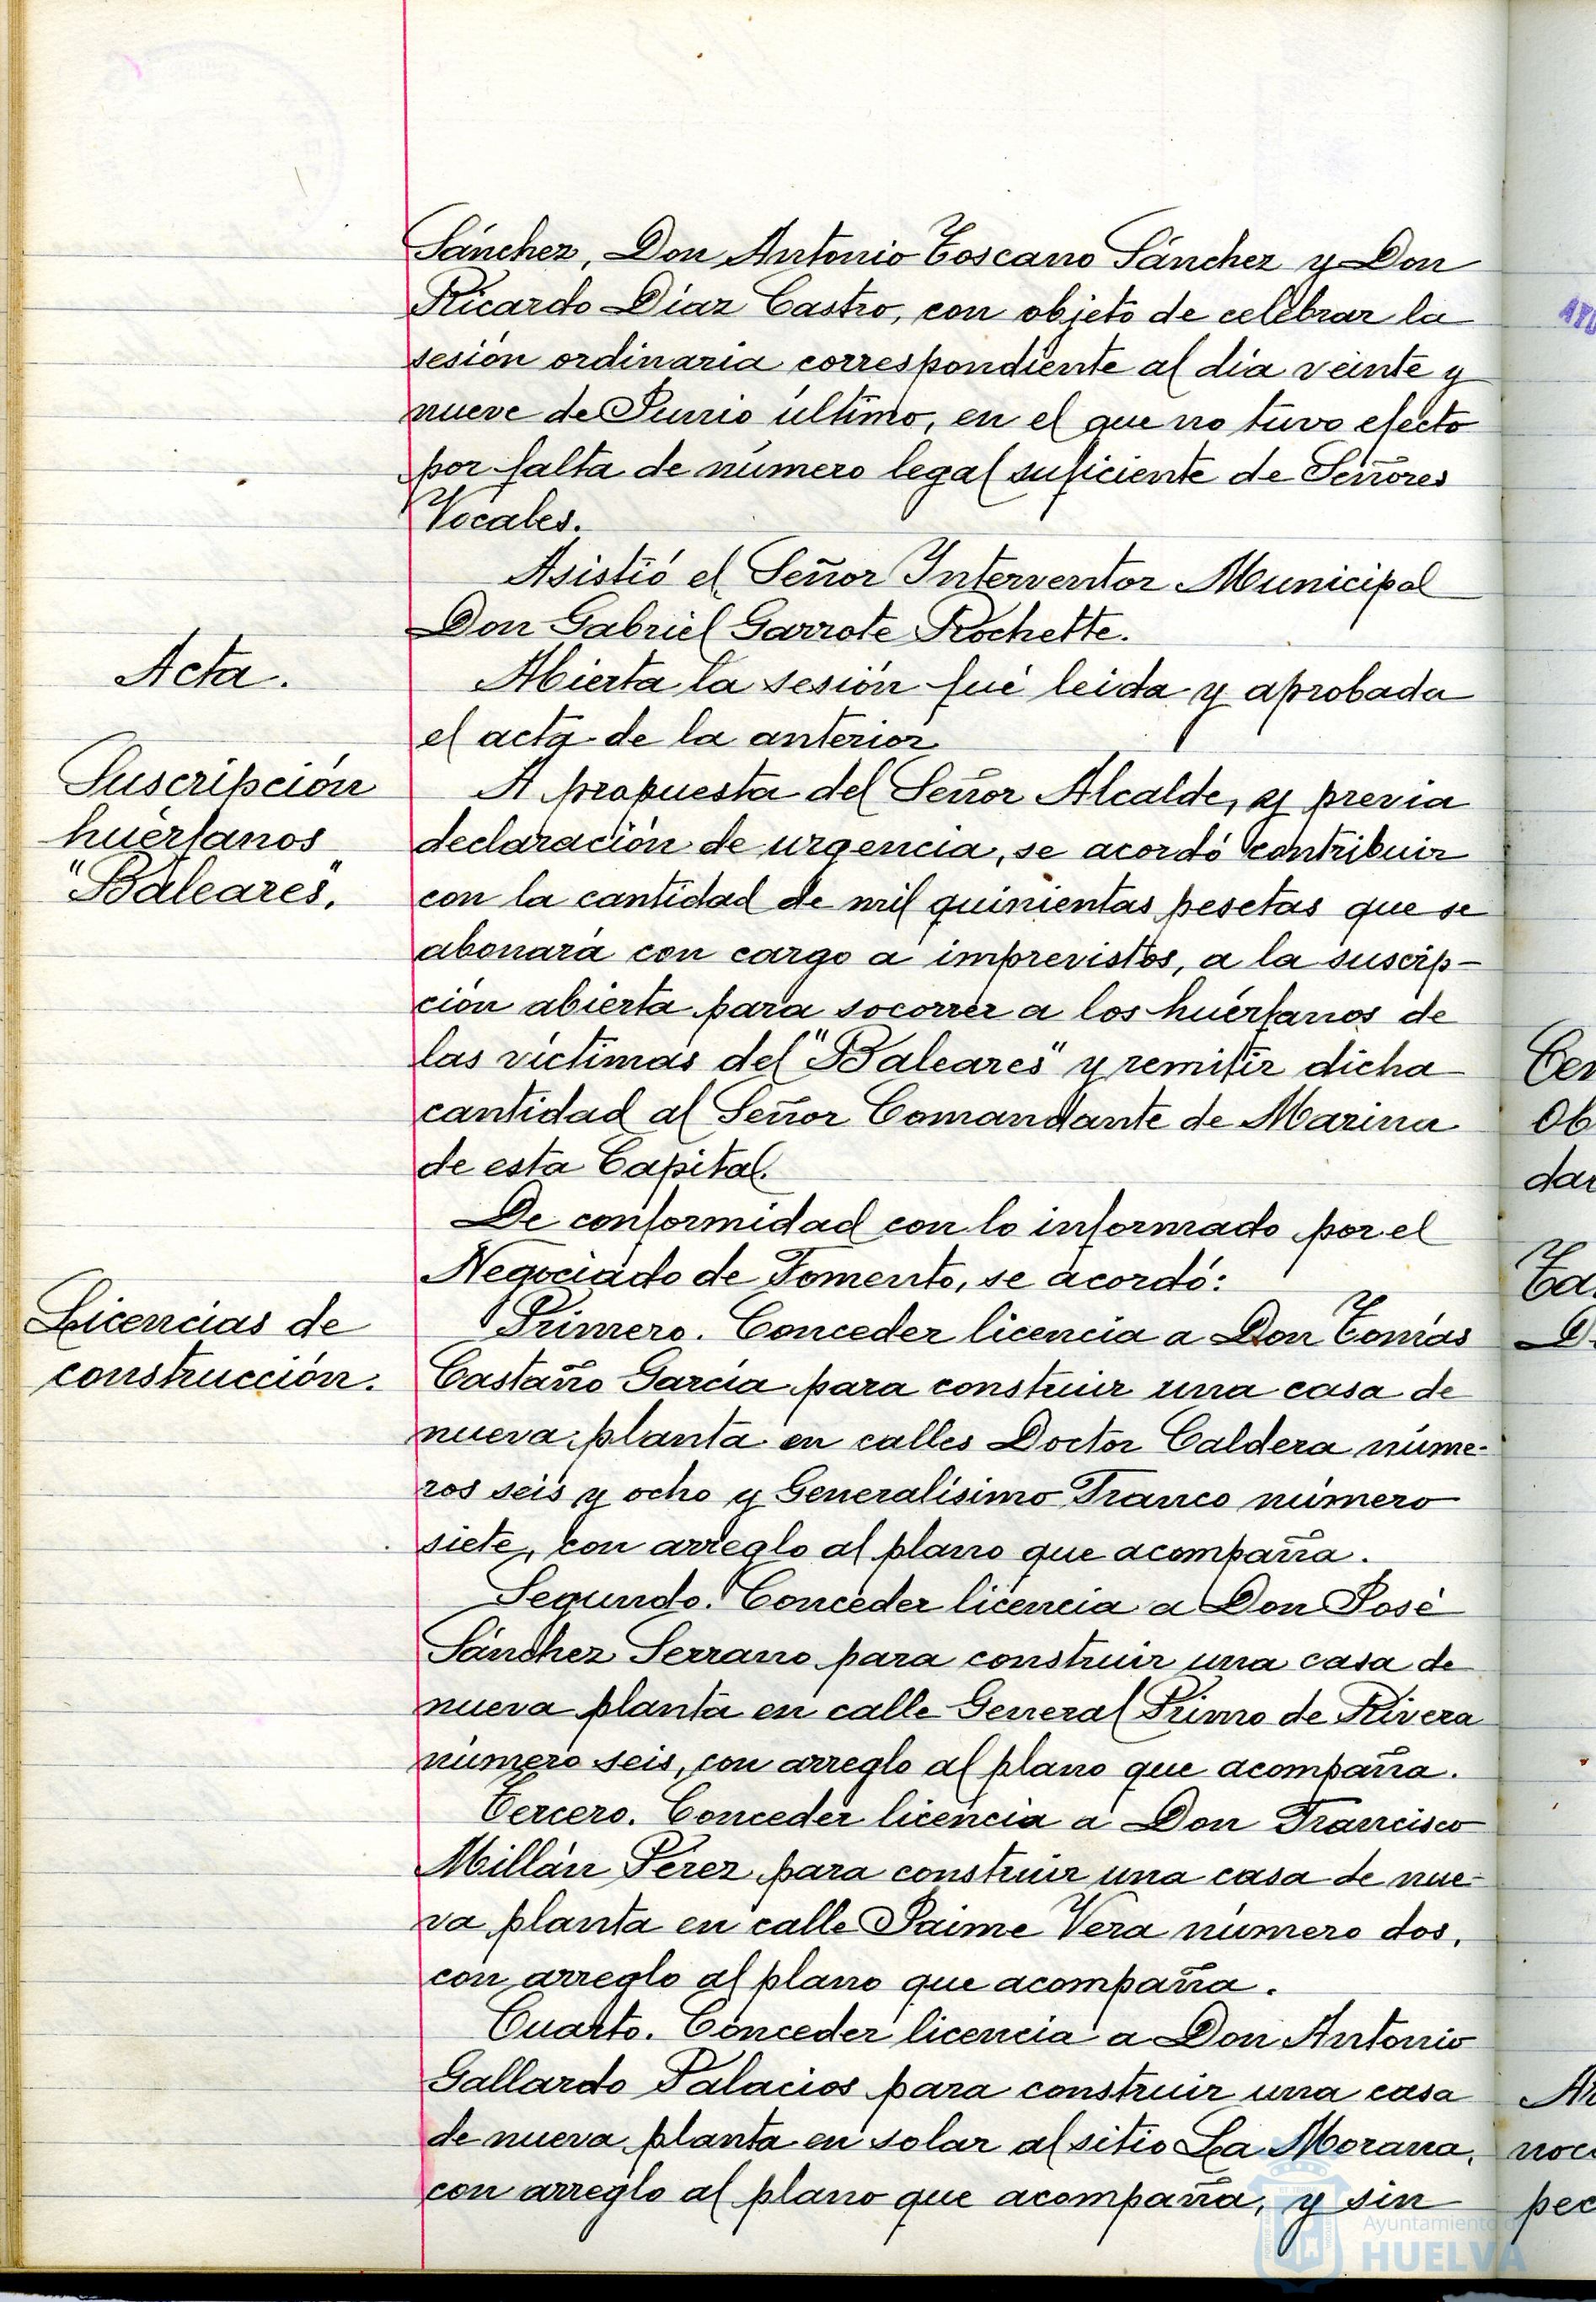 Sánchez, Don Antonio Toscano Sánchez y Don
Ricardo Díaz Castro, con objeto de celebrar la
sesión ordinaria correspondiente al día veinte y
nueve de Junio último, en el que no tuvo efecto
por falta de número legal suficiente de Señores
Vocales.
Asistió el Señor Interventor Municipal
Don Gabriel Garrote Rochette.
Acta.
Abierta la sesión fué leida y aprobada
el acta de la anterior
Suscripción
huérfanos
"Baleares".
A propuesta del Señor Alcalde, y previa
declaración de urgencia, se acordó contribuir
con la cantidad de mil quinientas pesetas que se
abonará con cargo a imprevistos, a la suscrip-
ción abierta para socorrer a los huérfanos de
las víctimas del "Baleares" y remitir dicha
cantidad al Señor Comandante de Marina
de esta Capital.
Licencias de
construcción.
De conformidad con lo informado por el
Negociado de Fomento, se acordó:
Primero. Conceder licencia a Don Tomás
Castaño García para construir una casa de
nueva planta en calles Doctor Caldera núme-
ros seis y ocho y Generalísimo Franco número
siete, con arreglo al plano que acompaña.
Segundo. Conceder licencia a Don José
Sánchez Serrano para construir una casa de
nueva planta en calle General Primo de Rivera
número seis, con arreglo al plano que acompaña.
Tercero. Conceder licencia a Don Francisco
Millán Pérez para construir una casa de nue-
va planta en calle Jaime Vera número dos,
con arreglo al plano que acompaña.
Cuarto. Conceder licencia a Don Antonio
Gallardo Palacios para construir una casa
de nueva planta en solar al sitio La Morana,
con arreglo al plano que acompaña, y sin
Ayuntamiento de
HUELVA